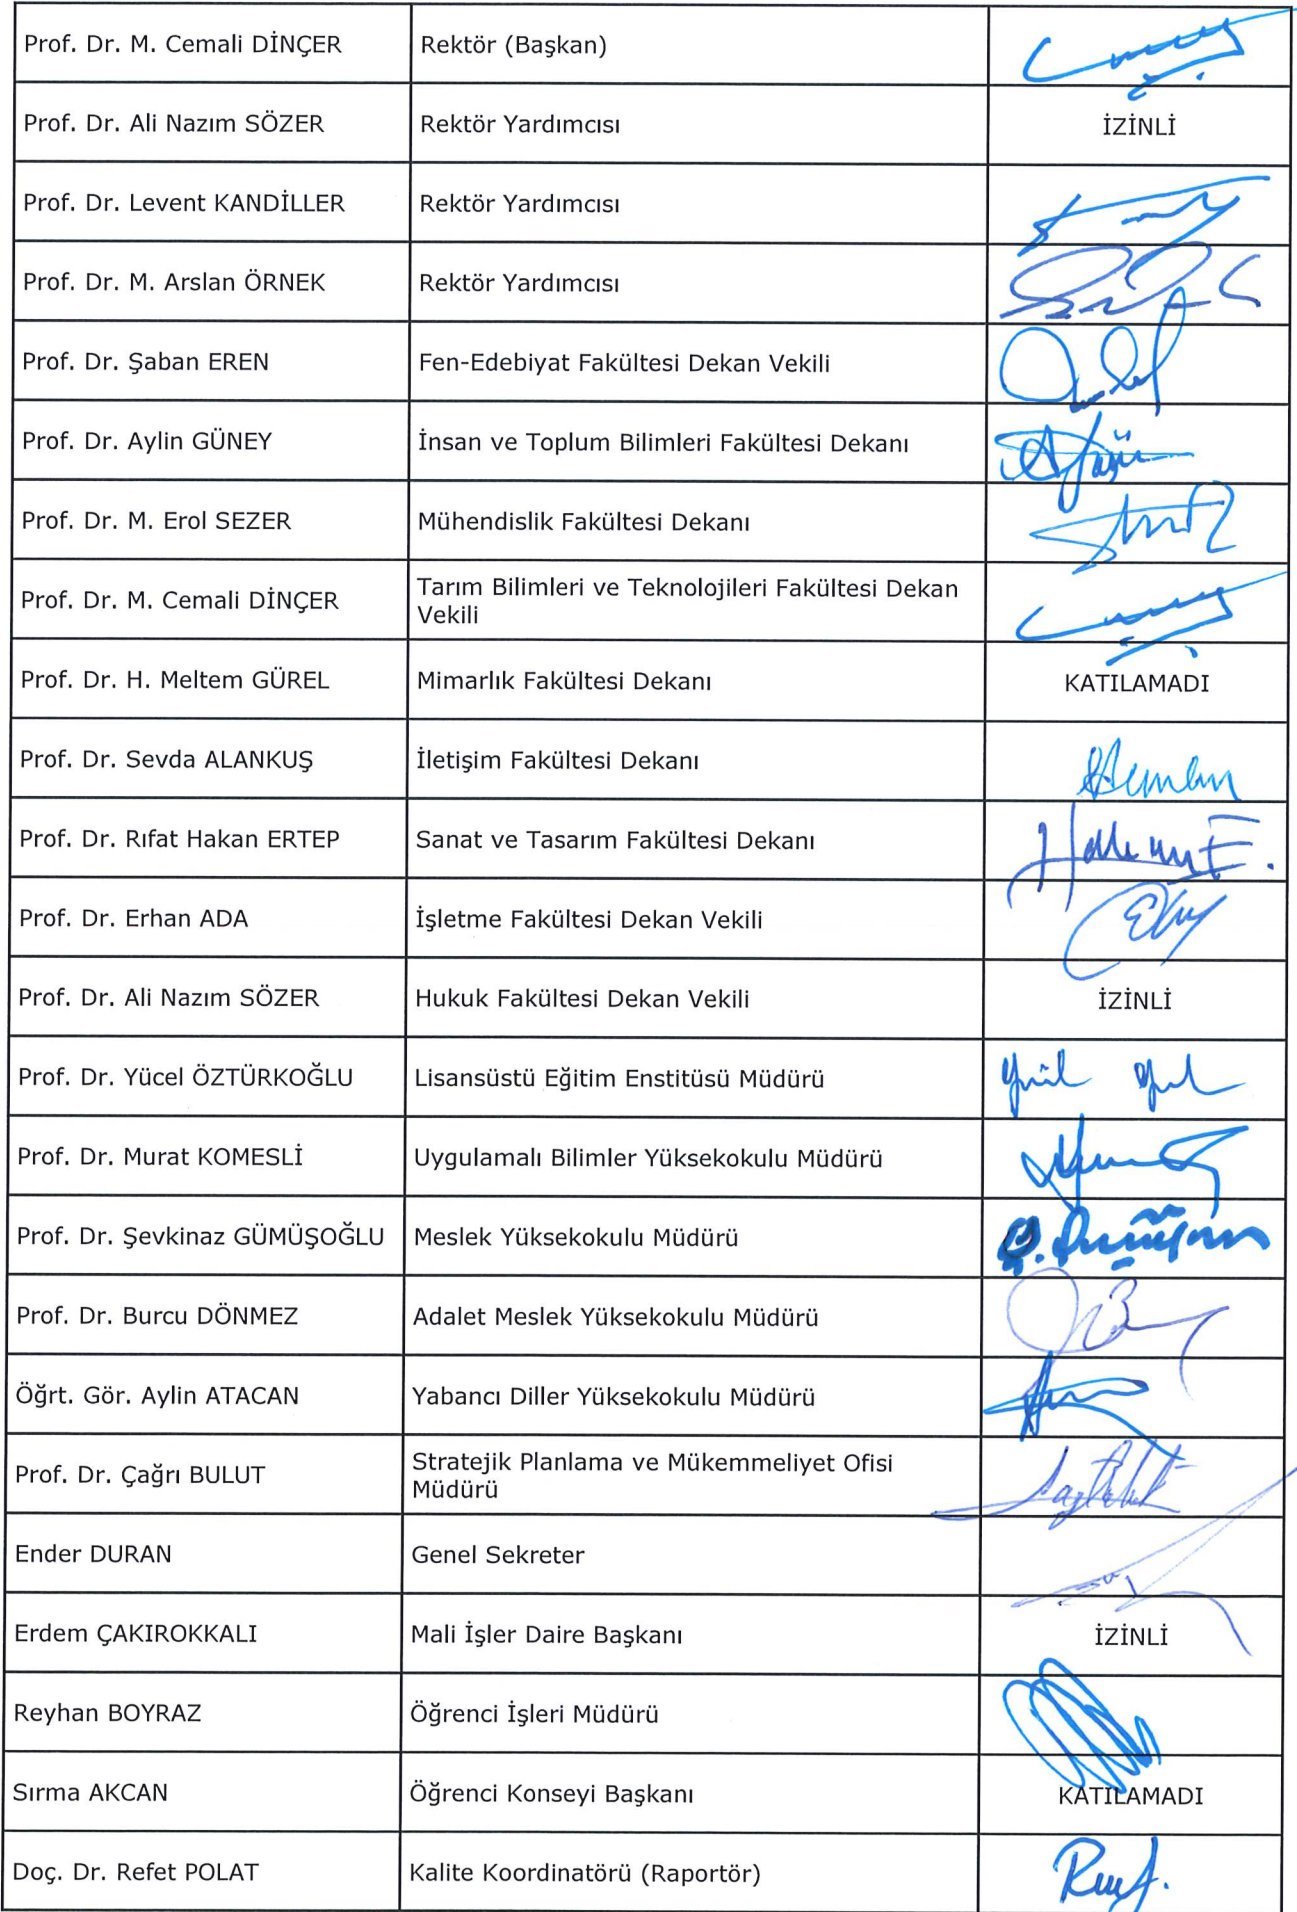 Prof. Dr. M. Cemali DİNÇER Rektör (Başkan)
Prof. Dr. Ali Nazım SÖZER Rektör Yardımcısı İZİNLİ
Prof. Dr. Levent KANDİLLER Rektör Yardımcısı
Prof. Dr. M. Arslan ÖRNEK Rektör Yardımcısı
Prof. Dr. Şaban EREN Fen-Edebiyat Fakültesi Dekan Vekili
Prof. Dr. Aylin GÜNEY İnsan ve Toplum Bilimleri Fakültesi Dekanı
Prof. Dr. M. Erol SEZER Mühendislik Fakültesi Dekanı
Prof. Dr. M. Cemali DİNÇER Tarım Bilimleri ve Teknolojileri Fakültesi Dekan
Vekili
Prof. Dr. H. Meltem GÜREL Mimarlık Fakültesi Dekanı KATILAMADI
Prof. Dr. Sevda ALANKUŞ İletişim Fakültesi Dekanı
Prof. Dr. Rıfat Hakan ERTEP Sanat ve Tasarım Fakültesi Dekanı
Prof. Dr. Erhan ADA İşletme Fakültesi Dekan Vekili
Prof. Dr. Ali Nazım SÖZER Hukuk Fakültesi Dekan Vekili İZİNLİ
Prof. Dr. Yücel ÖZTÜRKOĞLU Lisansüstü Eğitim Enstitüsü Müdürü
Prof. Dr. Murat KOMESLİ Uygulamalı Bilimler Yüksekokulu Müdürü
Prof. Dr. Şevkinaz GÜMÜŞOĞLU Meslek Yüksekokulu Müdürü
Prof. Dr. Burcu DÖNMEZ Adalet Meslek Yüksekokulu Müdürü
Öğrt. Gör. Aylin ATACAN Yabancı Diller Yüksekokulu Müdürü
Prof. Dr. Çağrı BULUT Stratejik Planlama ve Mükemmeliyet Ofisi
Müdürü
Ender DURAN Genel Sekreter
Erdem ÇAKIROKKALI Mali İşler Daire Başkanı İZİNLİ
Reyhan BOYRAZ Öğrenci İşleri Müdürü
Sırma AKCAN Öğrenci Konseyi Başkanı KATILAMADI
Doç. Dr. Refet POLAT Kalite Koordinatörü (Raportör)